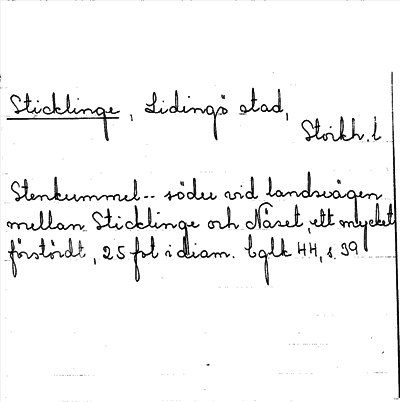 Sticklinge, Lidingö stad,
Stockh. l
Stenkummel-- söder vid landsvägen
mellan Sticklinge och Näset, ett mycket
förstördt, 25 fot i diam. Cglk 44, s. 39